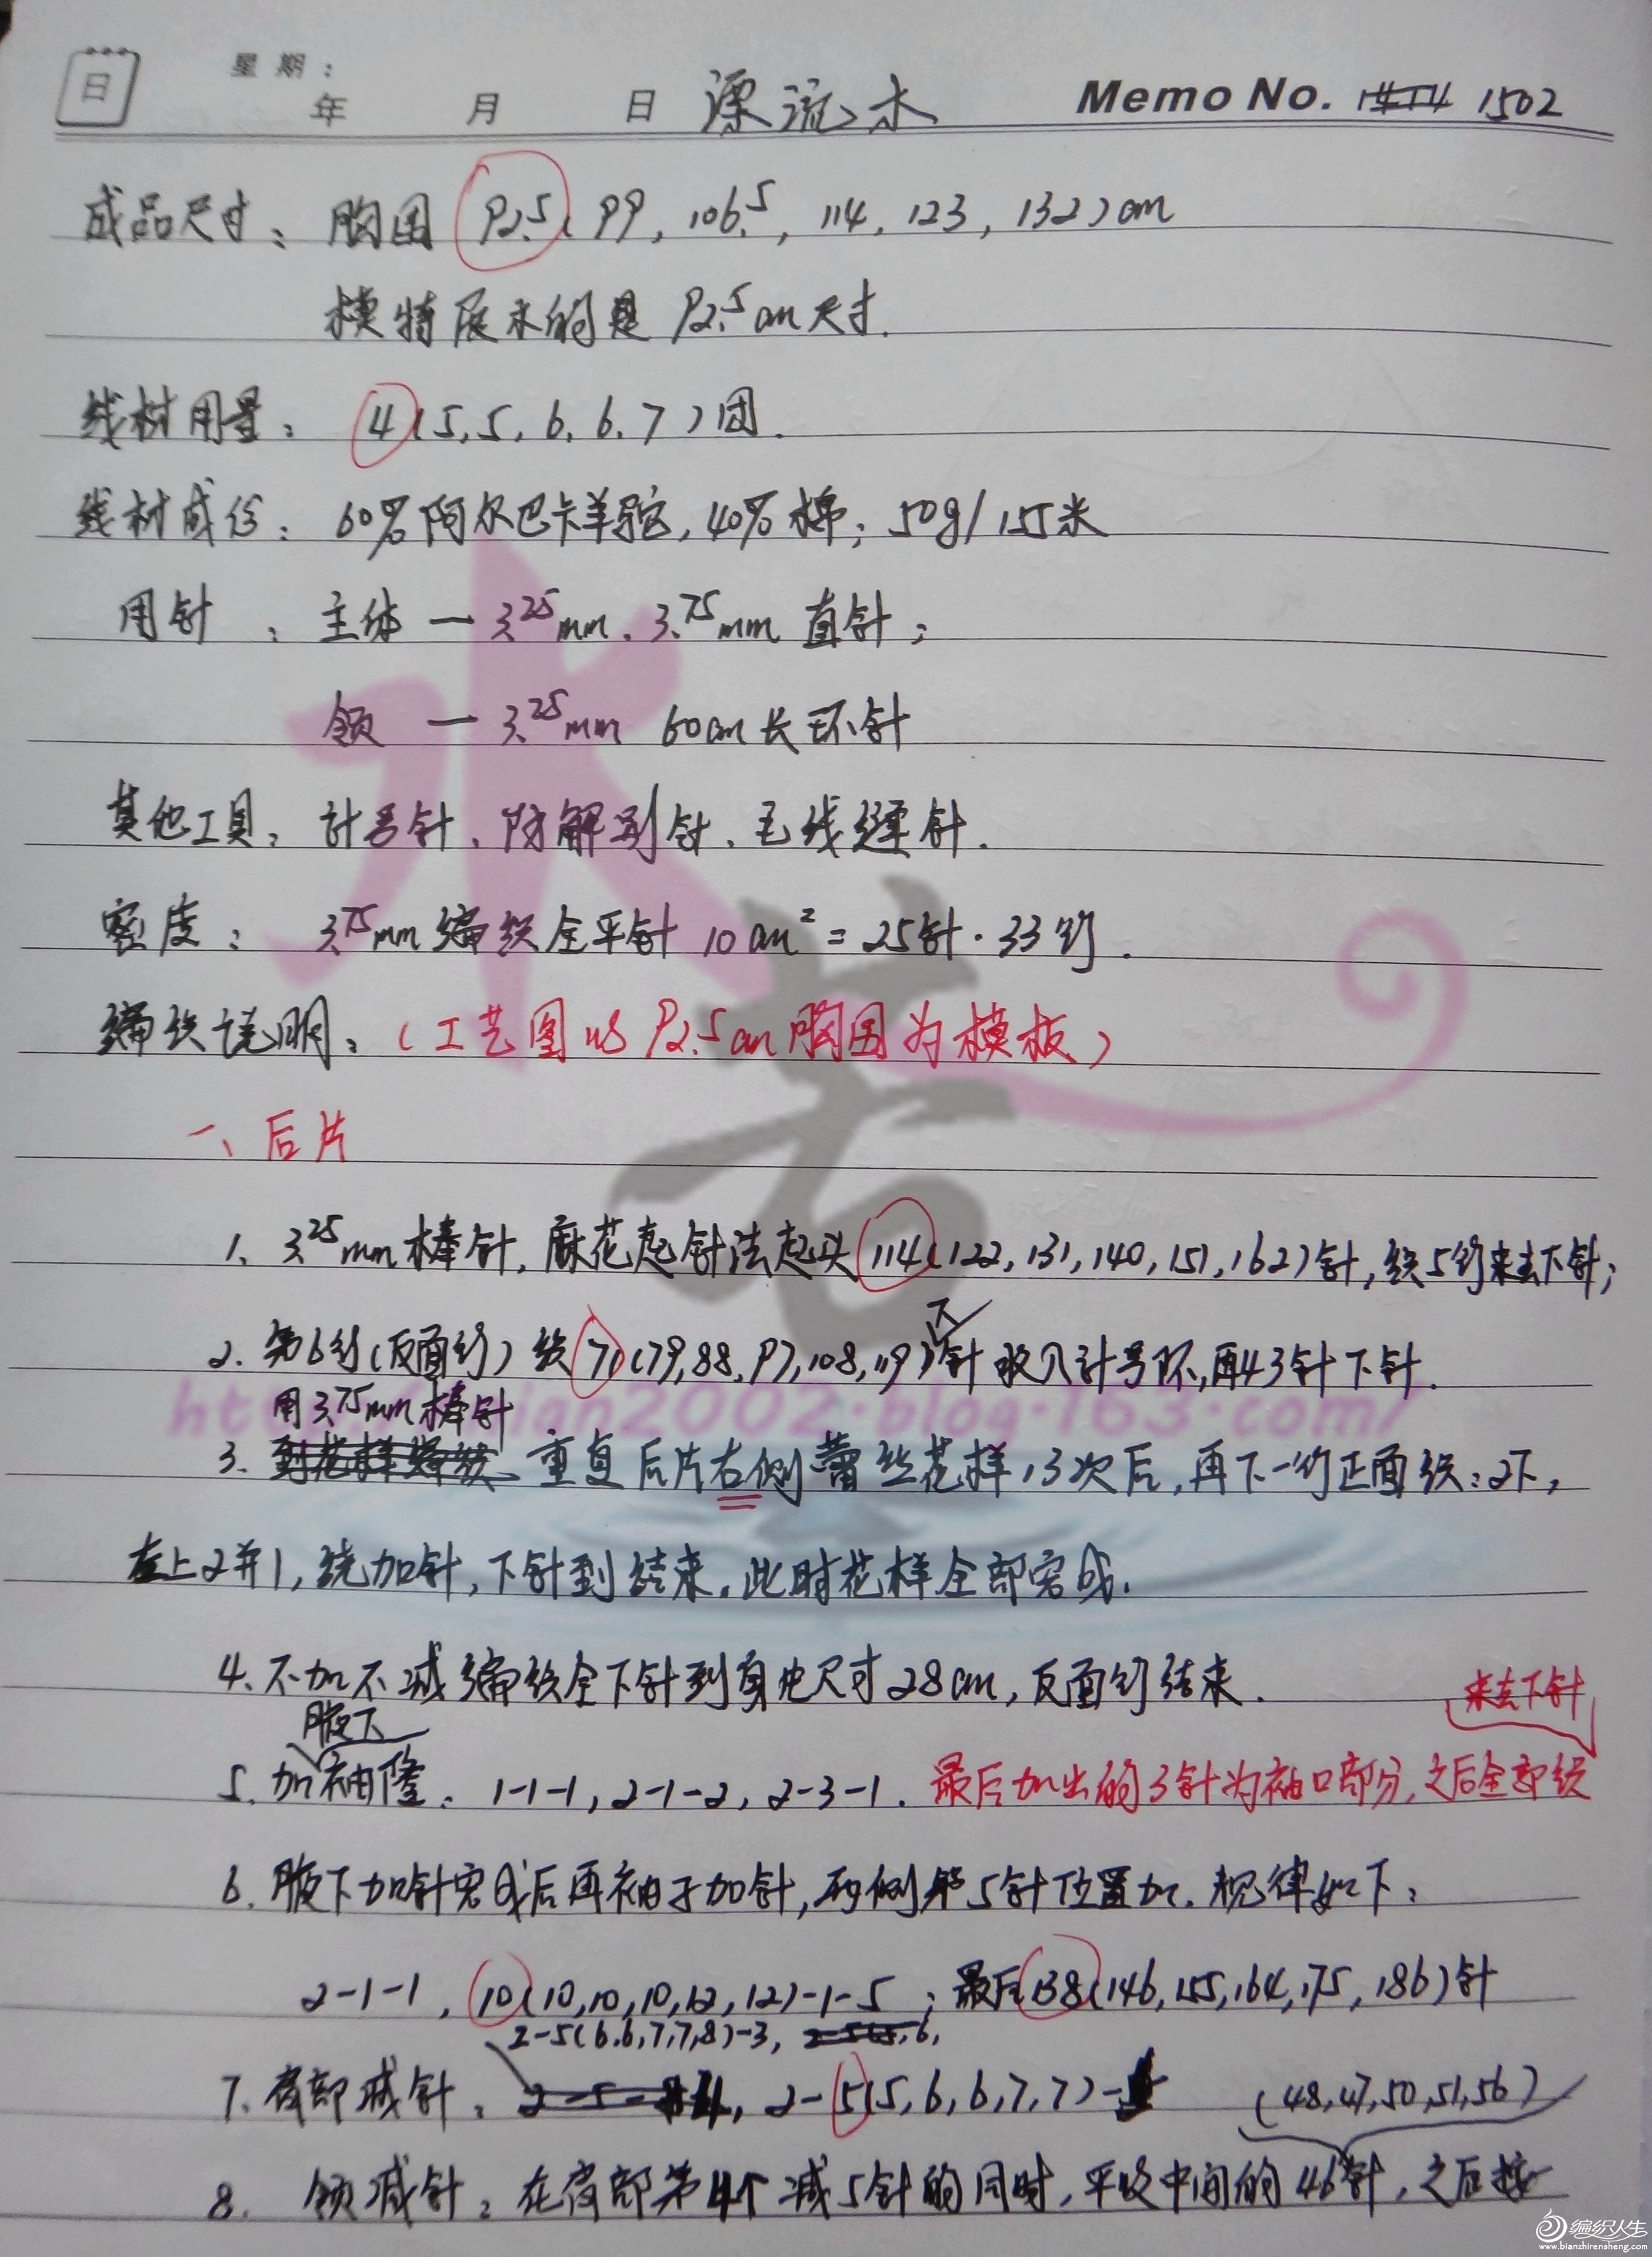 日 星期： 年 月 日 漂流木 Memo No. 1502
成品尺寸：胸围 92.5（99，106.5，114，123，132）cm
模特展示的是 92.5cm尺寸．
线材用量：4（5，5，6，6，7）团．
线材成份：60%阿尔巴卡羊驼，40%棉；50g/155米
用针：主体 — 3.25mm．3.75mm 直针；
领 — 3.25mm 60cm长环针
其他工具：计号针、防解别针、毛线缝针．
密度：3.75mm编织全平针 10cm²=25针·33行．
编织说明：（工艺图以92.5cm胸围为模板）
一、后片
1、3.25mm棒针，麻花起针法起头114（122，131，140，151，162）针，织5行来去下针；
2．第6行（反面行）织71（79，88，97，108，119）下针 收入计号环，再43针下针．
http://xian2002.blog.163.com/
用3.75mm棒针
3．重复后片右侧蕾丝花样13次后，再下一行正面织：2下，
左上2并1，绕加针，下针到结束．此时花样全部完成．
4．不加不减编织全下针到身长尺寸28cm，反面行结束．
来去下针
腋下
5．加袖隆：1-1-1，2-1-2，2-3-1．最后加出的3针为袖口部分，之后全部织
6．腋下加针完成后再袖子加针，两侧第5针位置加．规律如下：
2-1-1，10（10，10，10，12，12）-1-5；最后138（146，155，164，175，186）针
2-5（6．6，7，7，8）-3，
7．肩部减针：2-5（5，6，6，7，7）-
（48，47，50，51，56）
8．领减针：在肩部第4个减5针的同时，平收中间的46针，之后按
编织人生
www.bianzhirensheng.com